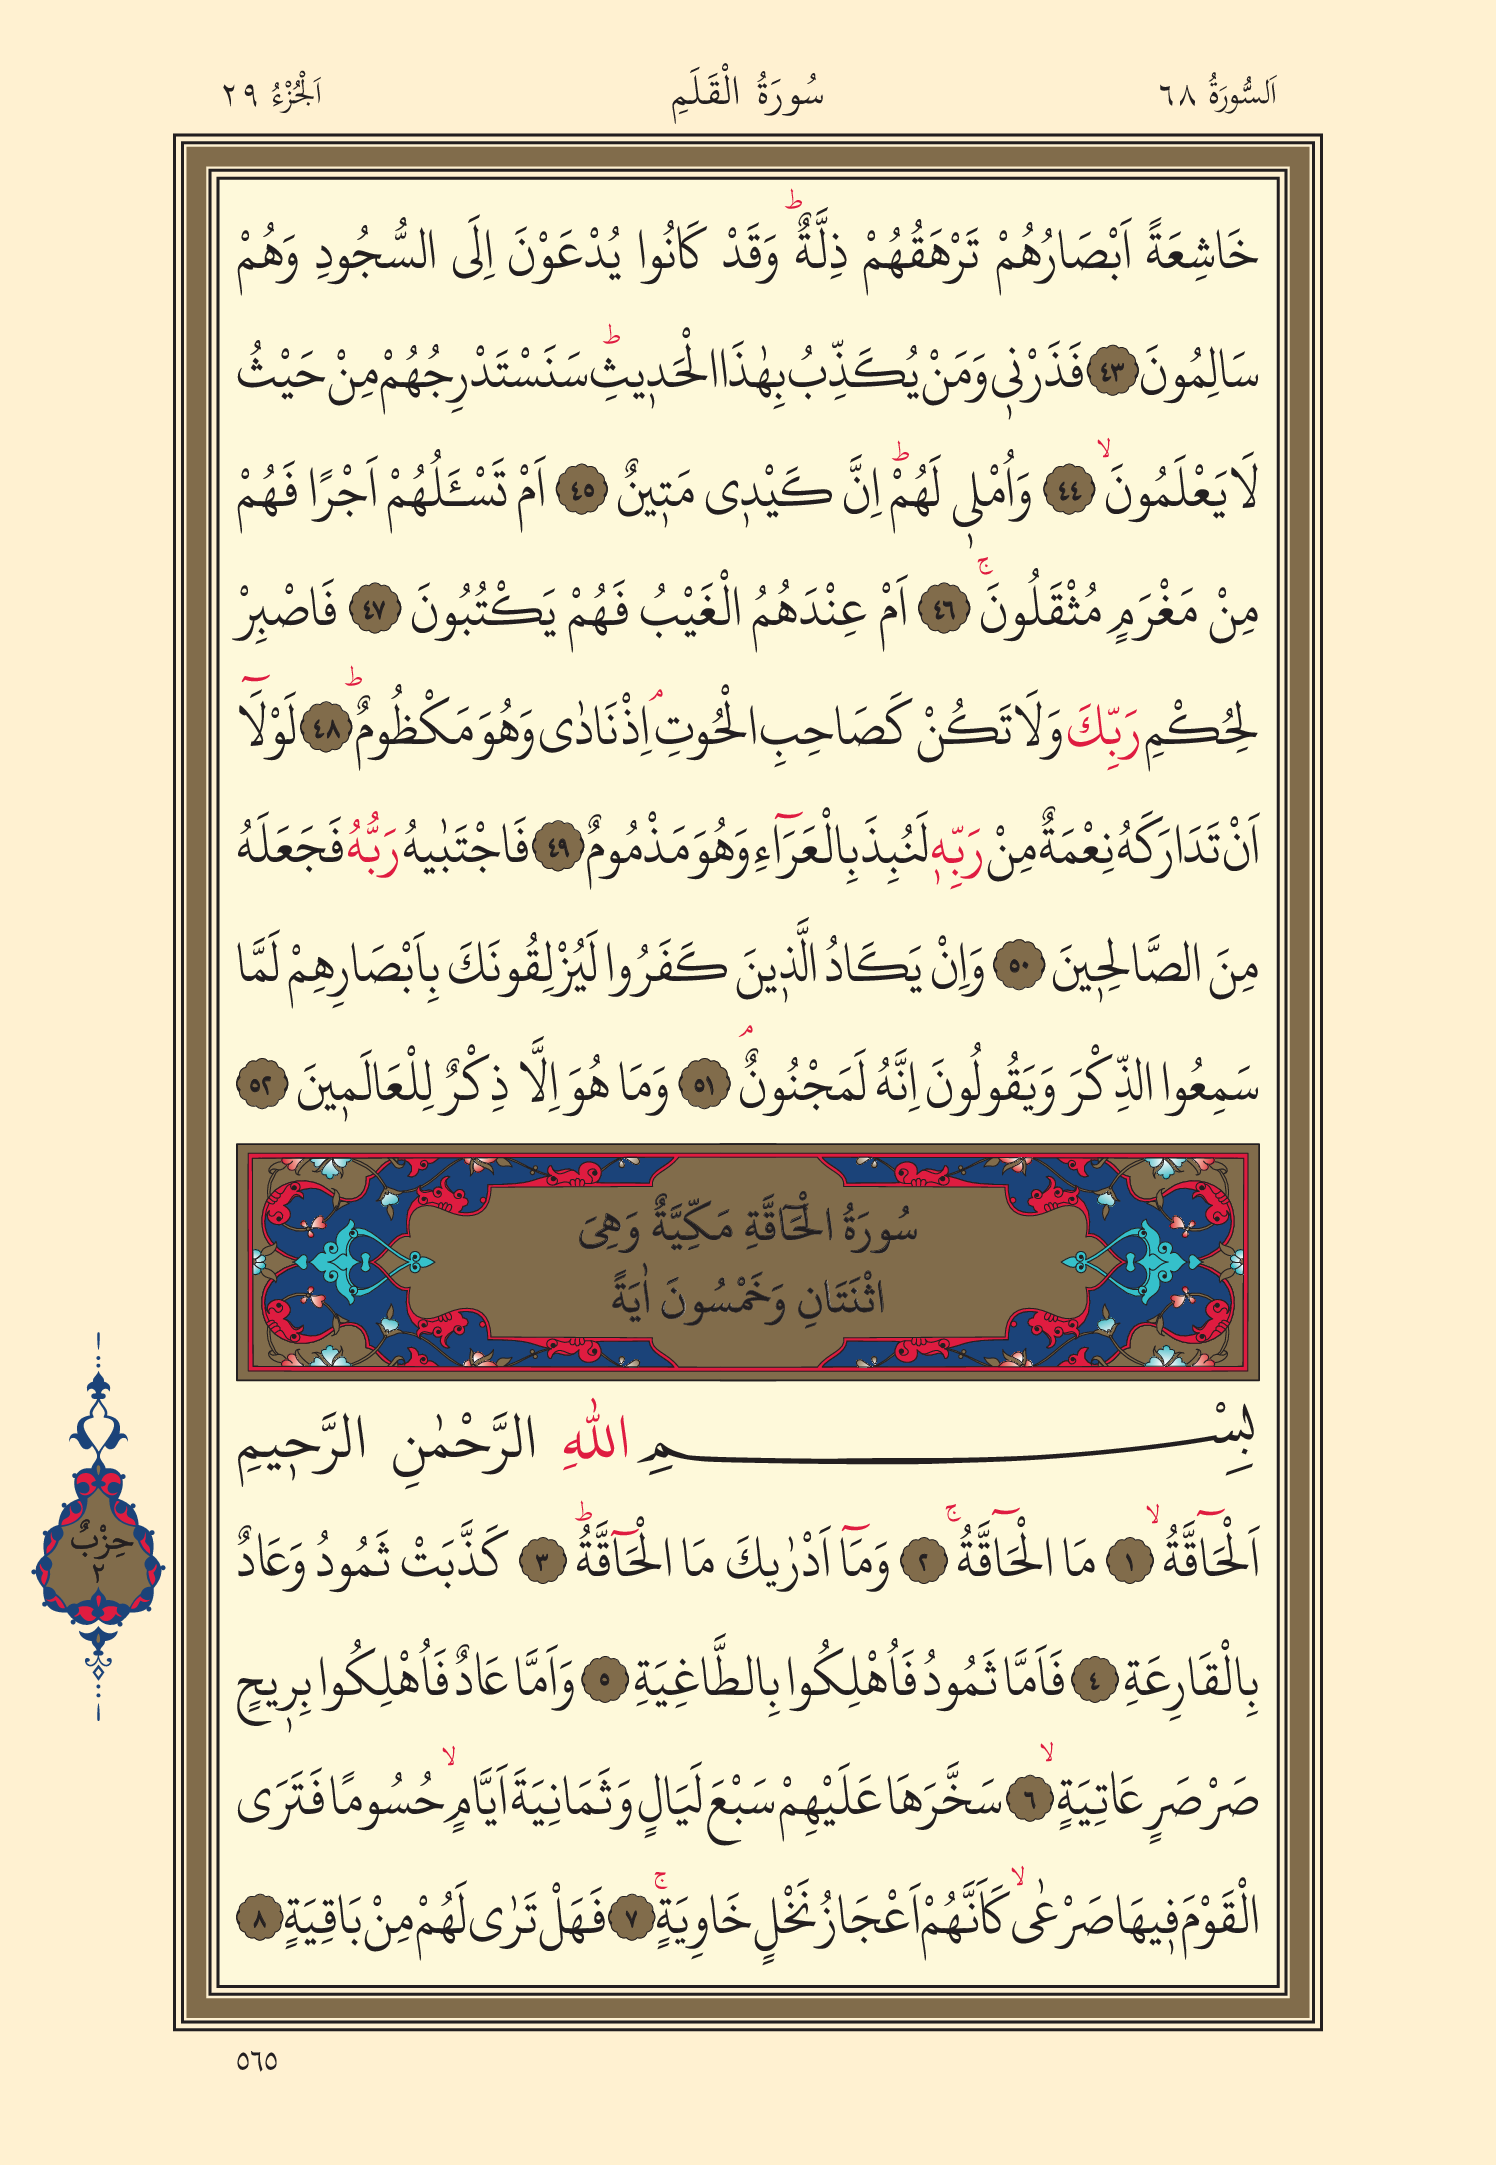 اَلسُّورَةُ ٦٨ سُورَةُ الْقَلَمِ اَلْجُزْءُ ٢٩
خَاشِعَةً اَبْصَارُهُمْ تَرْهَقُهُمْ ذِلَّةٌۜ وَقَدْ كَانُوا يُدْعَوْنَ اِلَى السُّجُودِ وَهُمْ
سَالِمُونَ ﴿٤٣﴾ فَذَرْنٖي وَمَنْ يُكَذِّبُ بِهٰذَا الْحَدٖيثِۜ سَنَسْتَدْرِجُهُمْ مِنْ حَيْثُ
لَا يَعْلَمُونَۙ ﴿٤٤﴾ وَاُمْلٖي لَهُمْۜ اِنَّ كَيْدٖي مَتٖينٌ ﴿٤٥﴾ اَمْ تَسْـَٔلُهُمْ اَجْرًا فَهُمْ
مِنْ مَغْرَمٍ مُثْقَلُونَۚ ﴿٤٦﴾ اَمْ عِنْدَهُمُ الْغَيْبُ فَهُمْ يَكْتُبُونَ ﴿٤٧﴾ فَاصْبِرْ
لِحُكْمِ رَبِّكَ وَلَا تَكُنْ كَصَاحِبِ الْحُوتِۢ اِذْ نَادٰى وَهُوَ مَكْظُومٌۜ ﴿٤٨﴾ لَوْلَٓا
اَنْ تَدَارَكَهُ نِعْمَةٌ مِنْ رَبِّهٖ لَنُبِذَ بِالْعَرَٓاءِ وَهُوَ مَذْمُومٌ ﴿٤٩﴾ فَاجْتَبٰيهُ رَبُّهُ فَجَعَلَهُ
مِنَ الصَّالِحٖينَ ﴿٥٠﴾ وَاِنْ يَكَادُ الَّذٖينَ كَفَرُوا لَيُزْلِقُونَكَ بِاَبْصَارِهِمْ لَمَّا
سَمِعُوا الذِّكْرَ وَيَقُولُونَ اِنَّهُ لَمَجْنُونٌۢ ﴿٥١﴾ وَمَا هُوَ اِلَّا ذِكْرٌ لِلْعَالَمٖينَ ﴿٥٢﴾
سُورَةُ الْحَٓاقَّةِ مَكِّيَّةٌ وَهِيَ
اثْنَتَانِ وَخَمْسُونَ اٰيَةً
بِسْمِ اللّٰهِ الرَّحْمٰنِ الرَّحٖيمِ
اَلْحَٓاقَّةُۙ ﴿١﴾ مَا الْحَٓاقَّةُۚ ﴿٢﴾ وَمَٓا اَدْرٰيكَ مَا الْحَٓاقَّةُۜ ﴿٣﴾ كَذَّبَتْ ثَمُودُ وَعَادٌ
بِالْقَارِعَةِ ﴿٤﴾ فَاَمَّا ثَمُودُ فَاُهْلِكُوا بِالطَّاغِيَةِ ﴿٥﴾ وَاَمَّا عَادٌ فَاُهْلِكُوا بِرٖيحٍ
صَرْصَرٍ عَاتِيَةٍۙ ﴿٦﴾ سَخَّرَهَا عَلَيْهِمْ سَبْعَ لَيَالٍ وَثَمَانِيَةَ اَيَّامٍۙ حُسُومًا فَتَرَى
الْقَوْمَ فٖيهَا صَرْعٰىۙ كَاَنَّهُمْ اَعْجَازُ نَخْلٍ خَاوِيَةٍۚ ﴿٧﴾ فَهَلْ تَرٰى لَهُمْ مِنْ بَاقِيَةٍ ﴿٨﴾
حِزْبٌ
٢
٥٦٥